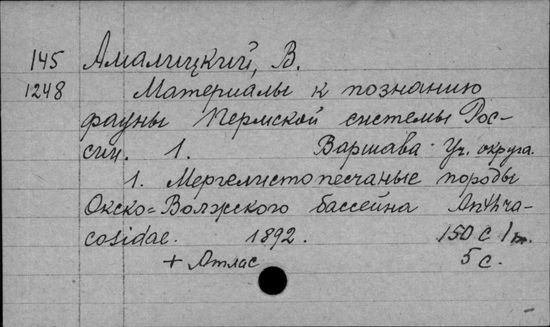 145 Амалицкий, В.
1248 Материалы к познанию
фауны Пермской системы Рос-
сии. 1. Варшава. Уч. округа.
1. Мергелистопесчаные породы
Окско-Волжского бассейна Anthra-
cosidae. 1892. 150 с 1 т.
+ Атлас 5 с.